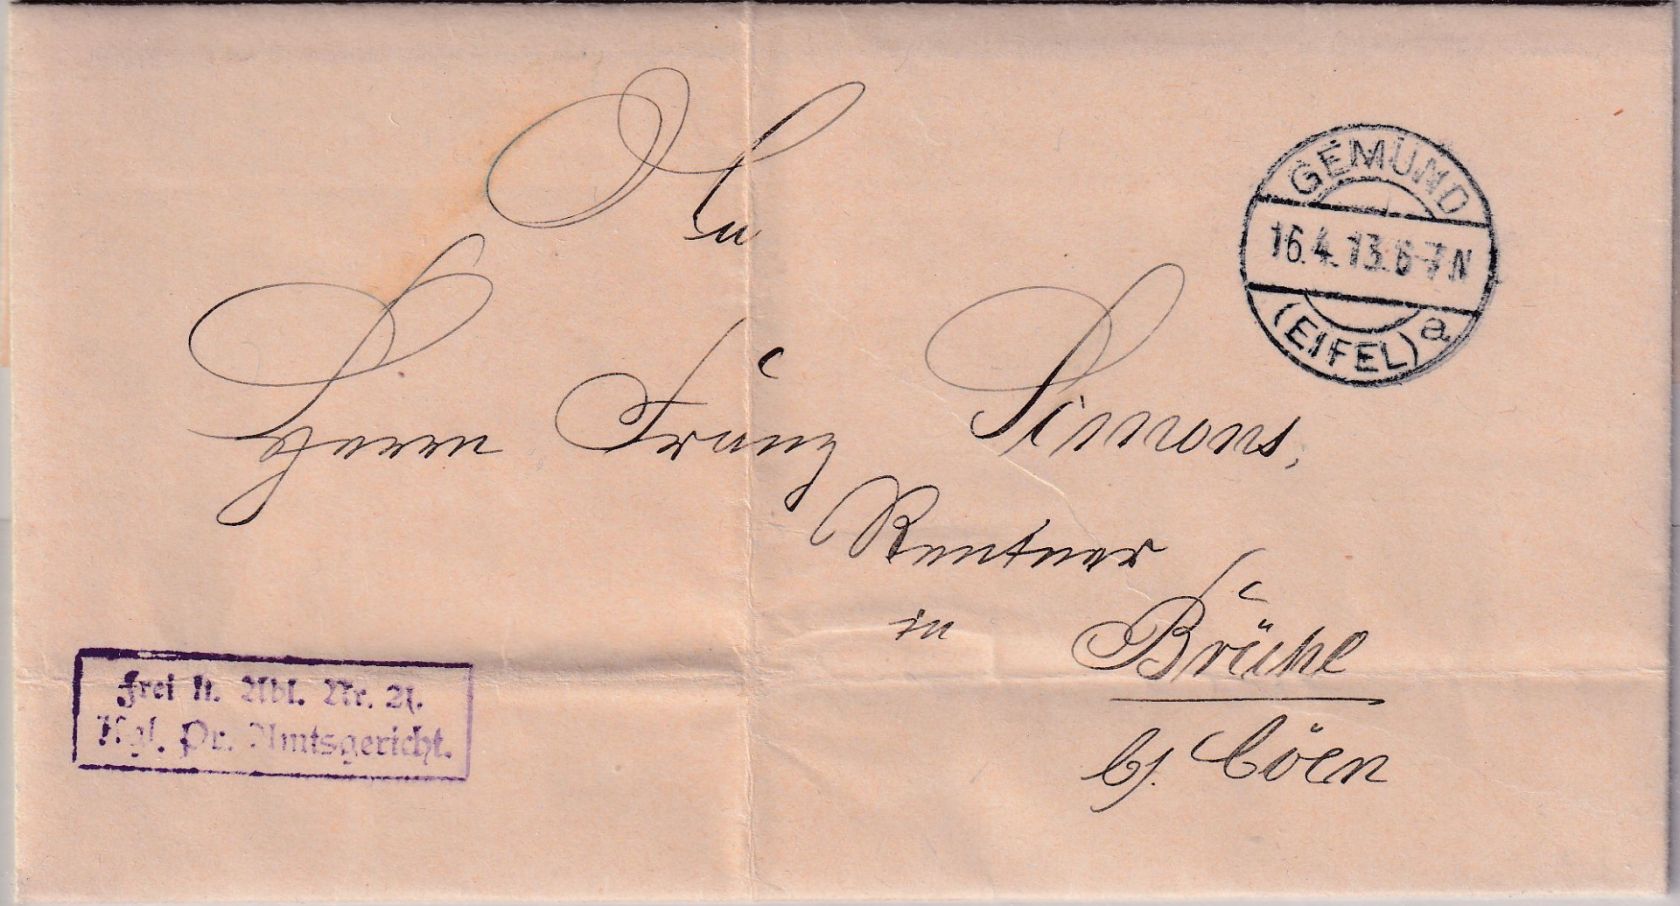 An
Herrn Franz Simons,
Rentner
in Brühl
b/. Cöln
GEMÜND
16.4.13.6-7N
(EIFEL) a
Frei lt. Abl. Nr. 21.
Kgl. Pr. Amtsgericht.